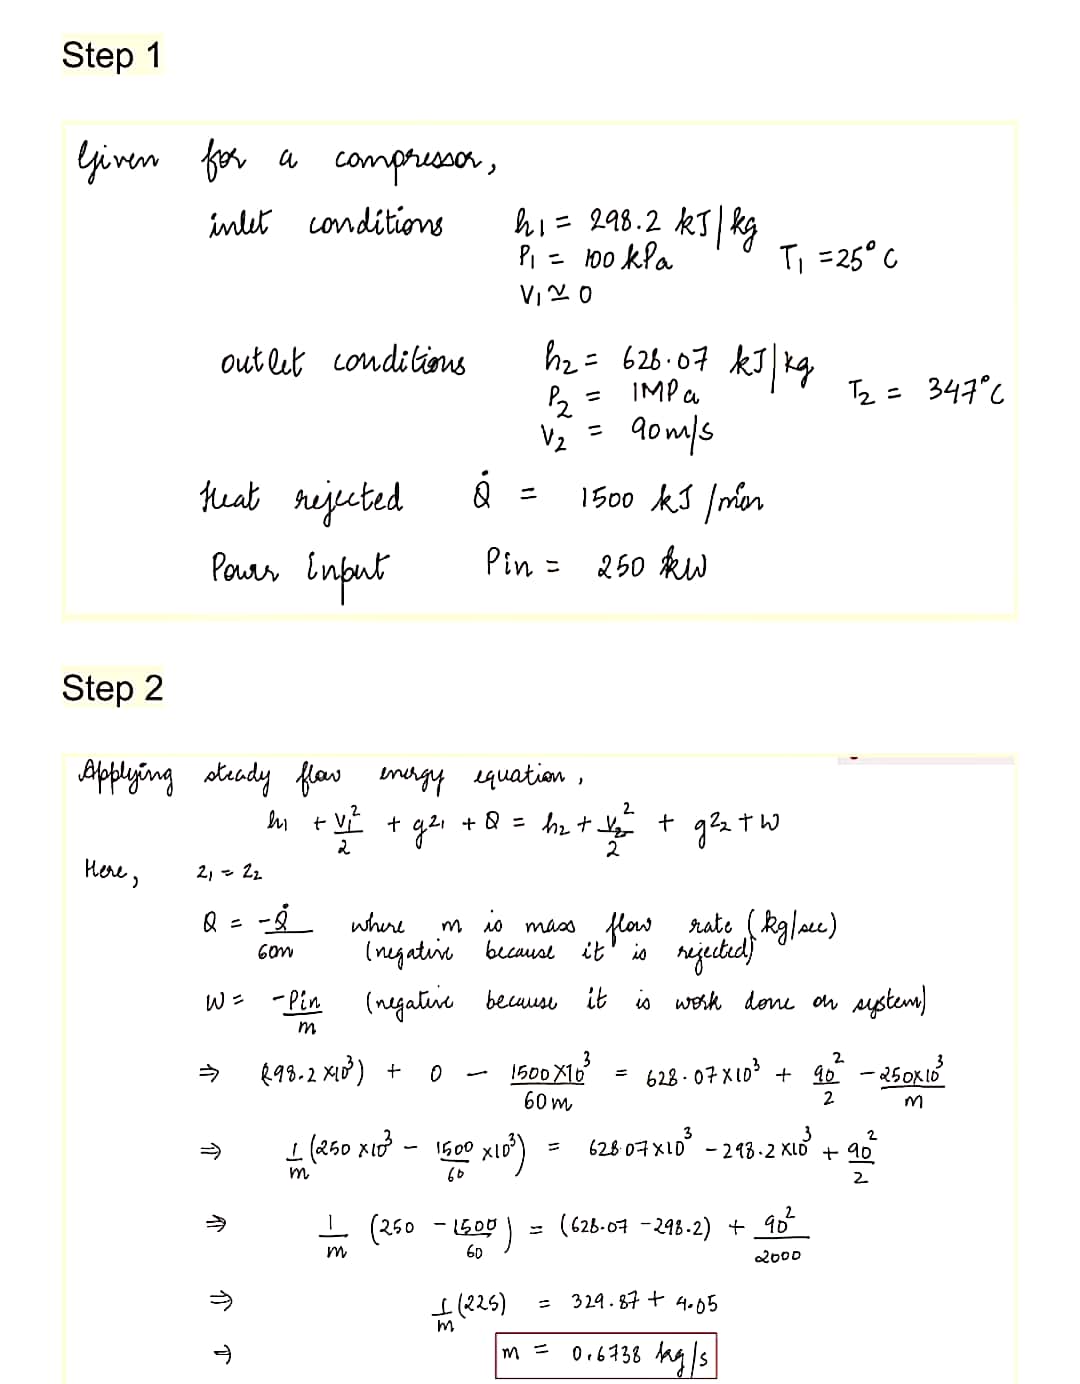 Step 1
Given for a compressor,
inlet conditions h1 = 298.2 kJ/kg
P1 = 100 kPa T1 = 25°C
V1 ≃ 0
outlet conditions h2 = 628.07 kJ/kg
P2 = 1MPa T2 = 347°C
V2 = 90m/s
Heat rejected Q̇ = 1500 kJ/min
Power input Pin = 250 kW
Step 2
Applying steady flow energy equation,
h1 + V1²/2 + gz1 + Q = h2 + V2²/2 + gz2 + W
Here, z1 ≃ z2
Q = -Q̇/60m where m is mass flow rate (kg/sec)
(negative because it is rejected)
W = -Pin/m (negative because it is work done on system)
⇒ (298.2 ×10³) + 0 - 1500×10³/60m = 628.07×10³ + 90²/2 - 250×10³/m
⇒ 1/m (250 ×10³ - 1500/60 ×10³) = 628.07×10³ - 298.2 ×10³ + 90²/2
⇒ 1/m (250 - 1500/60) = (628.07 - 298.2) + 90²/2000
⇒ 1/m (225) = 329.87 + 4.05
⇒ m = 0.6738 kg/s